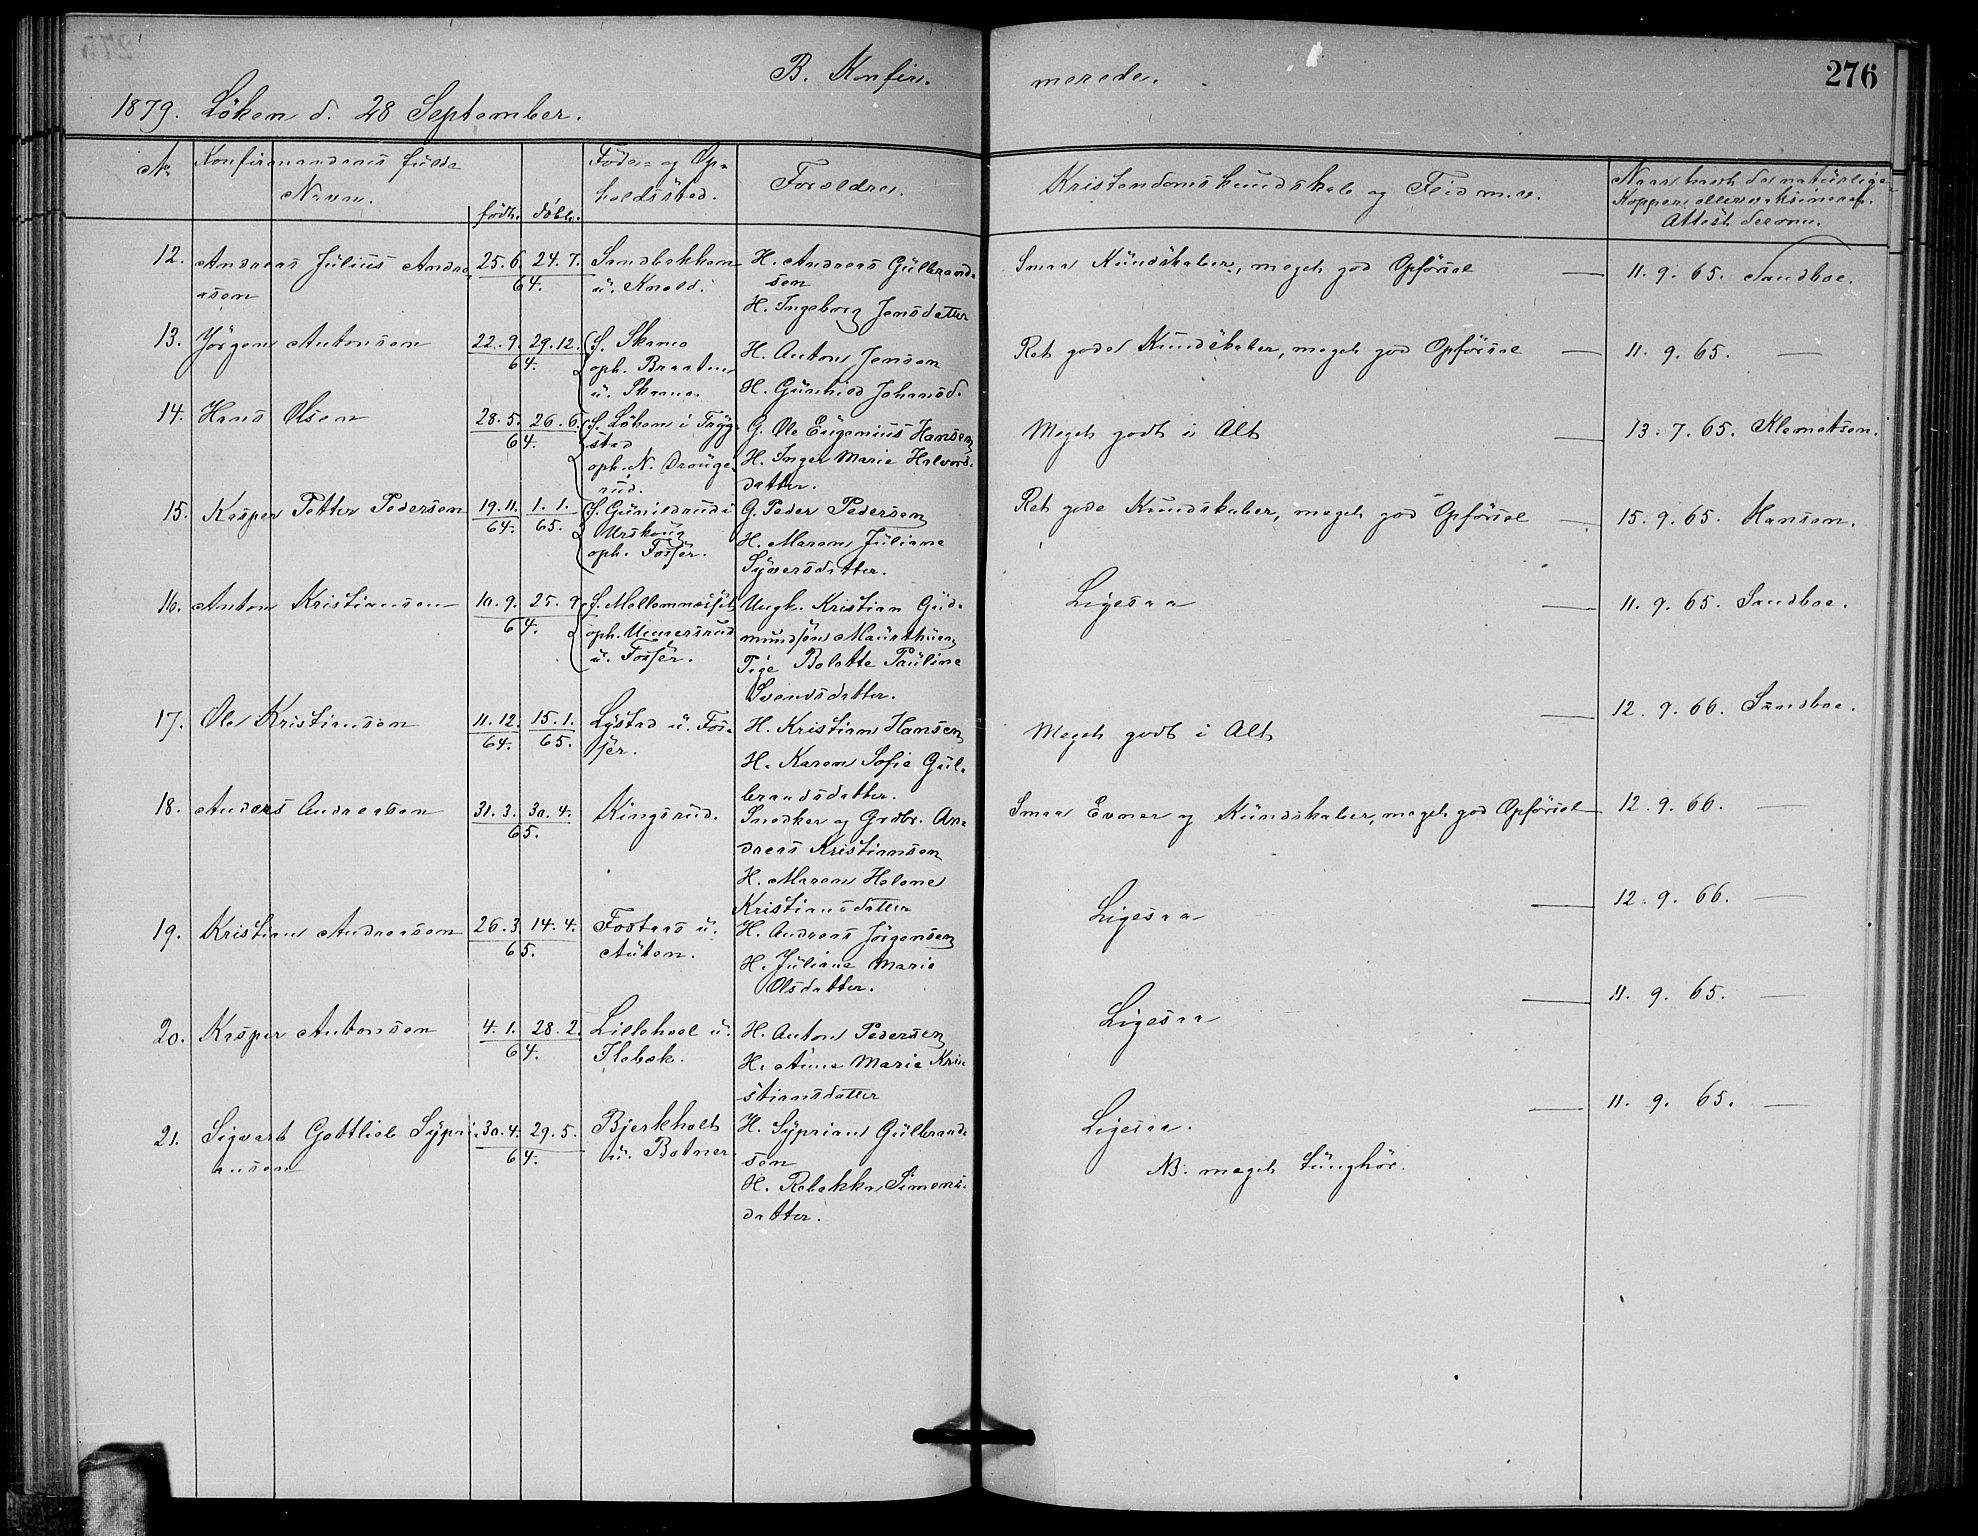 B. Konfirmerede.
276
1879. Löken d. 28 September.
No
Konfirmandens fulde Navn.
födt. döbt.
Föde- og Opholdssted.
Forældre.
Kristendomskundskab og Flid m.v.
Naar havt de naturlige Kopper eller vaksineret. Attest derom.
12. Andreas Julius Andreasen
25.6. 24.7. 64.
Sandbakken u. Knold.
H. Andreas Gülbrandsen
H. Ingeborg Jensdatter
Smaa Kündskaber, meget god Opförsel
11. 9. 65. Sandboe.
13. Jörgen Antonsen
22.9. 29.12. 64.
f. Skano oph. Braaten u. Skano.
H. Anton Jensen
H. Günhild Johansd.
Ret gode Kundskaber, meget god Opförsel
11. 9. 65. —
14. Hans Olsen
28.5. 26.6. 64.
f. Löken i Trygstad oph. N. Drougerud.
G. Ole Eügenius Hansen
H. Inger Marie Halvorsdatter.
Meget godt i Alt
13. 7. 65. Klemetsen.
15. Kasper Petter Pedersen
19.11. 64. 1.1. 65.
f. Gunildrud i Urskoug oph. Fosser.
G. Peder Pedersen
H. Maren Juliane Syversdatter.
Ret gode Kundskaber, meget god Opförsel
15. 9. 65. Hansen.
16. Anton Kristiansen
10.9. 25.9. 64.
f. Mellemnæsset oph. Unnersrud u. Fosser.
Ungk. Kristian Güdmundsen Maürthüen
Pige Bolette Pauline Svendsdatter.
Ligesaa
11. 9. 65. Sandboe.
17. Ole Kristiansen
11.12. 64. 15.1. 65.
Lystad u. Fosser.
H. Kristian Hansen
H. Karen Sofie Gulbrandsdatter.
Meget godt i Alt
12. 9. 66. Sandboe.
18. Anders Andreasen
31.3. 30.4. 65.
Kingsrud.
Snedker og Grdbr. Andreas Kristiansen
H. Maren Helene Kristiansdatter
Smaa Evner og Kündskaber, meget god Opförsel
12. 9. 66. —
19. Kristian Andreasen
26.3. 14.4. 65.
Fostaas u. Aüten.
H. Andreas Jörgensen
H. Juliane Marie Olsdatter.
Ligesaa
12. 9. 66. —
20. Kasper Antonsen
4.1. 28.2. 64.
Lillehoel u. Flebek.
H. Anton Pedersen
H. Anne Marie Kristiansdatter
Ligesaa
11. 9. 65. —
21. Sigvart Gottlieb Sypriansen
30.4. 29.5. 64.
Bjerkholt u. Botner
H. Syprian Gülbrandsen
H. Rebekka Simensdatter.
Ligesaa.
NB. meget tünghör.
11. 9. 65. —